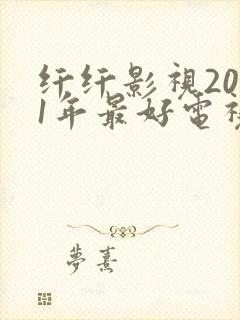 纤纤影視20
1年最好電視
夢熹